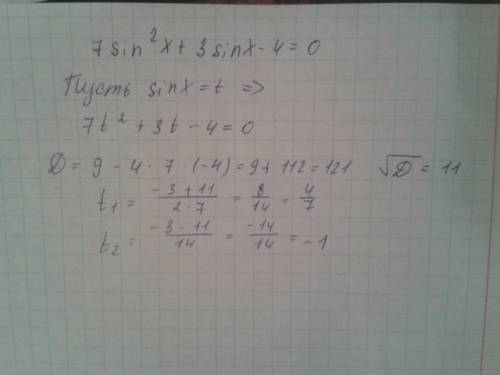 7 sin²x + 3 sinx - 4 = 0
Пусть sinx = t =>
7t² + 3t - 4 = 0
D = 9 - 4 · 7 · (-4) = 9 + 112 = 121 √D = 11
t₁ = (-3 + 11)/(2 · 7) = 8/14 = 4/7
t₂ = (-3 - 11)/14 = -14/14 = -1